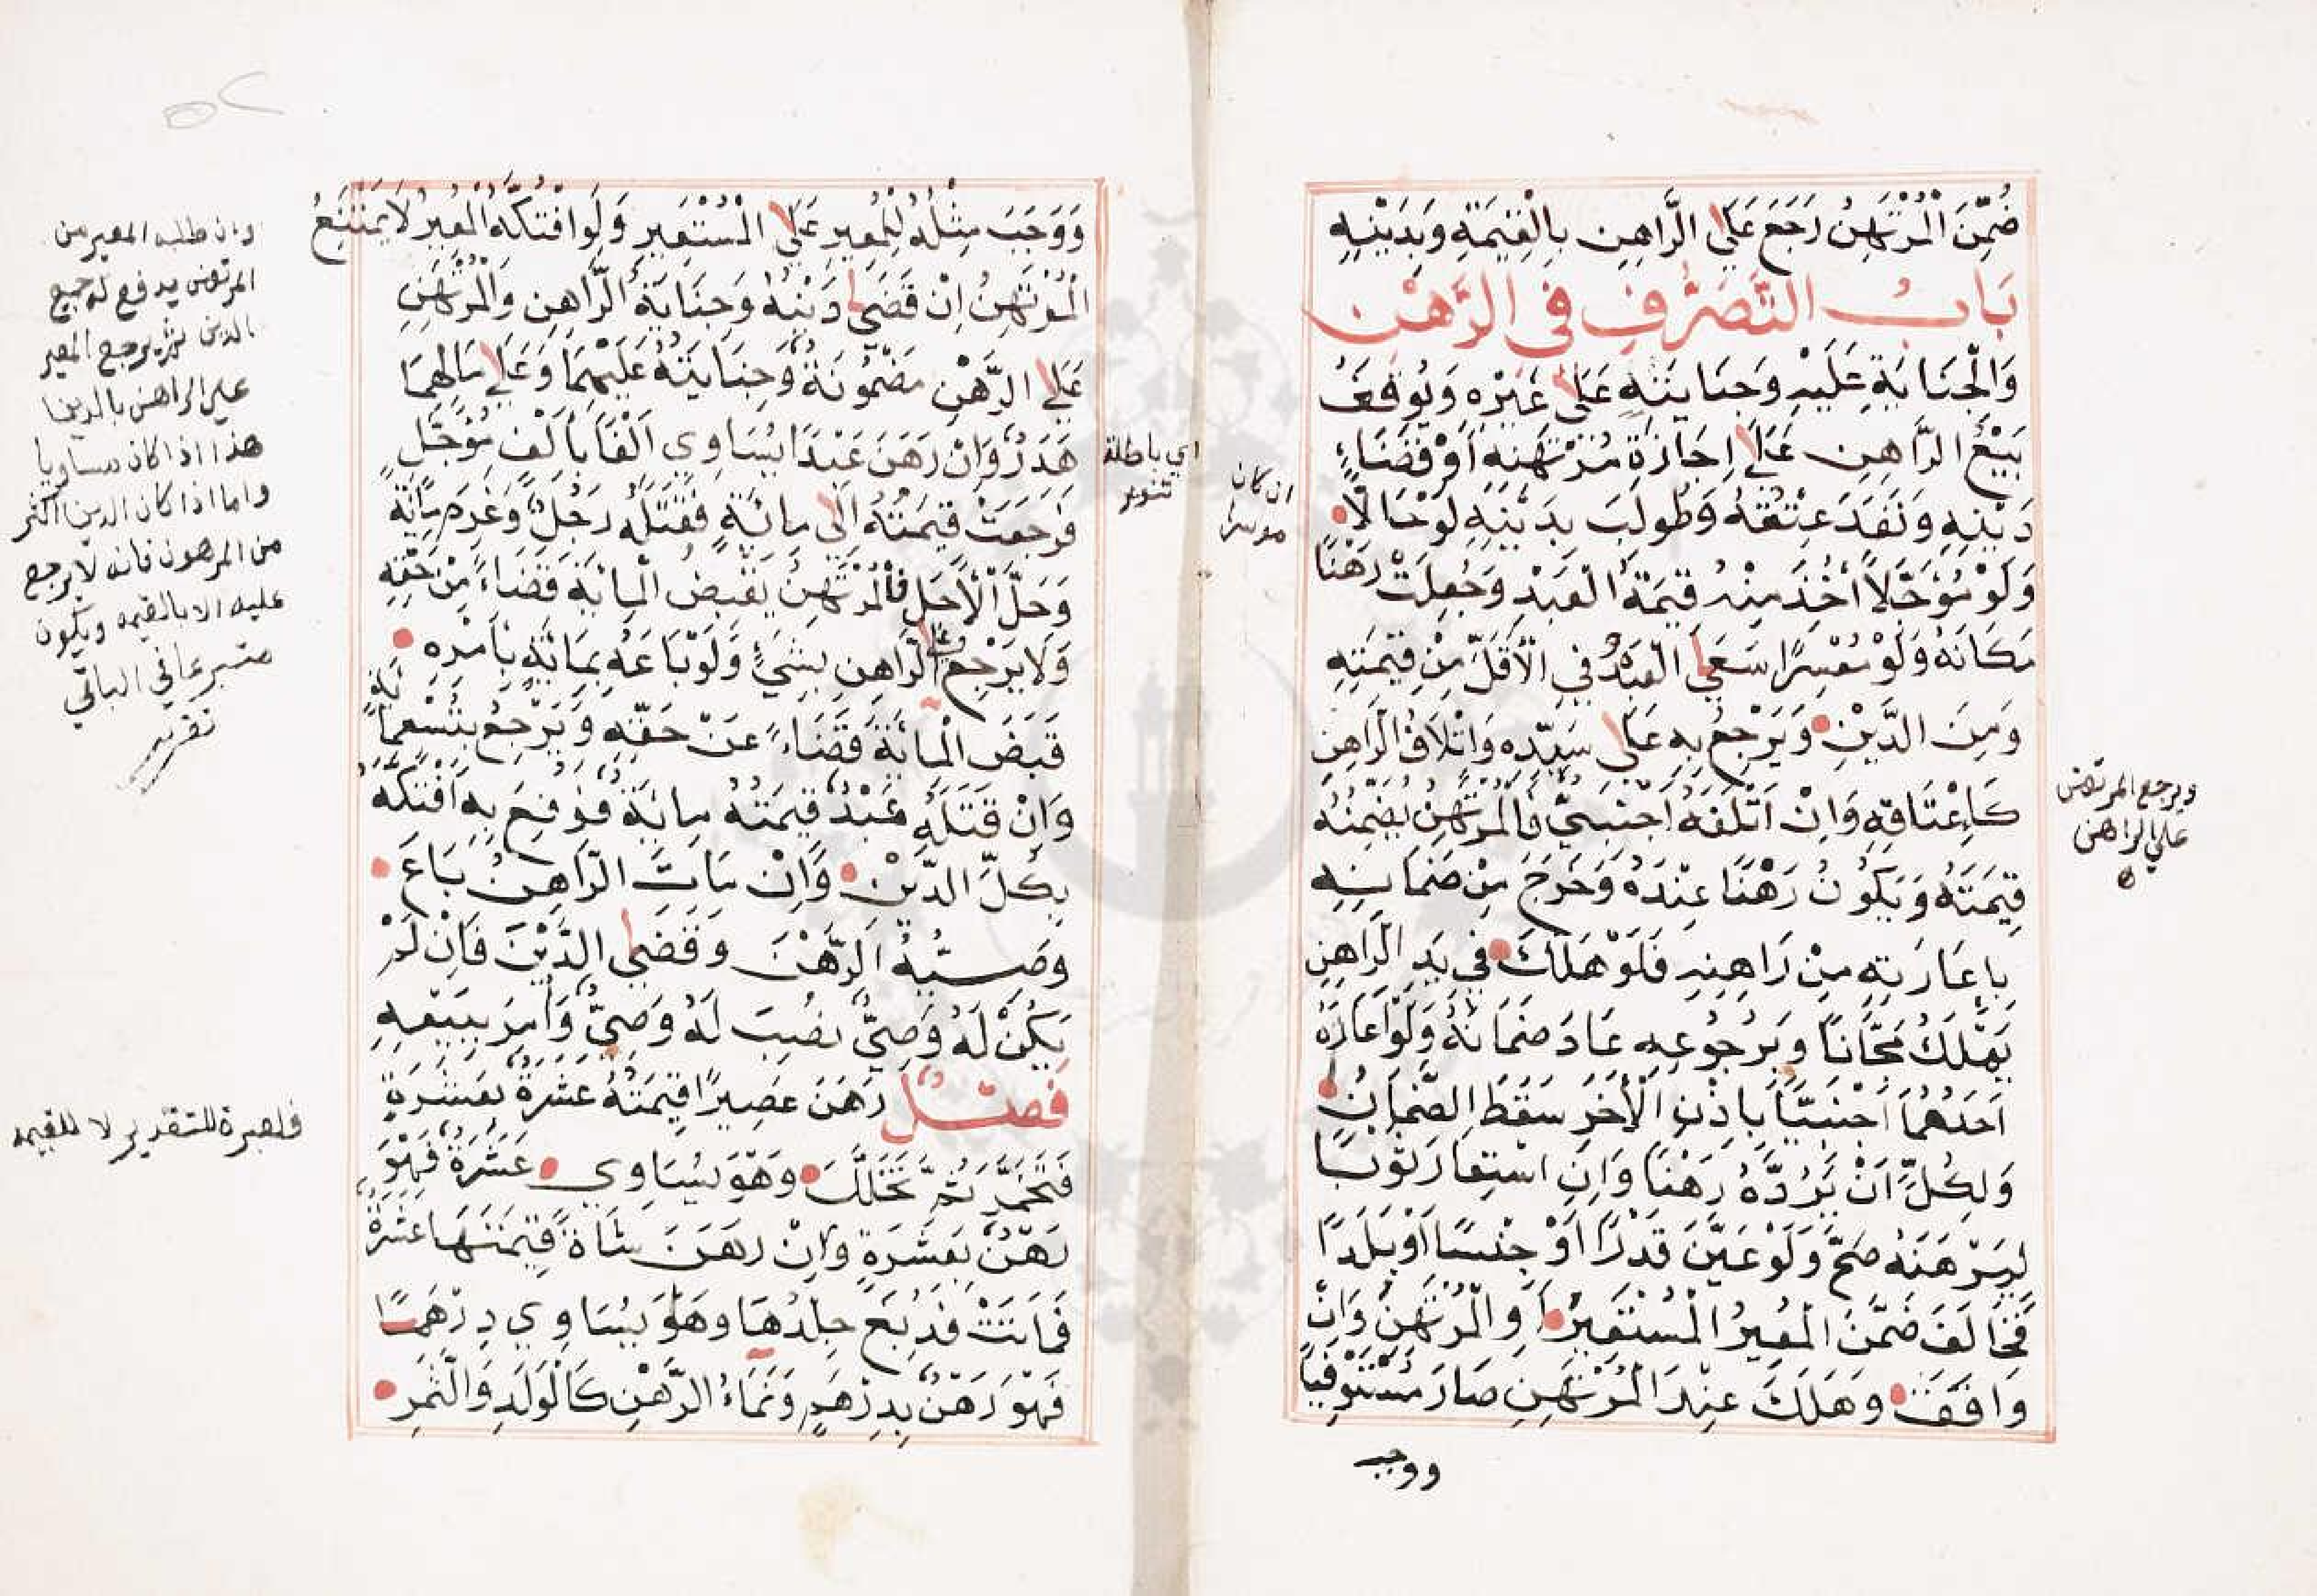 ضُمِّنَ الْمُرْتَهِنُ رَجَعَ عَلَى الرَّاهِنِ بِالْقِيمَةِ وَبِدَيْنِهِ
بَابُ التَّصَرُّفِ فِي الرَّهْنِ
وَالْجِنَايَةِ عَلَيْهِ وَجِنَايَتِهِ عَلَى غَيْرِهِ وَيُوقَفُ
بَيْعُ الرَّاهِنِ عَلَى اِجَازَةِ مُرْتَهِنِهِ اَوْ قَضَاءِ
دَيْنِهِ وَنَفَذَ عِتْقُهُ وَطُولِبَ بِدَيْنِهِ لَوْ حَالًّا
وَلَوْ مُؤَجَّلاً أُخِذَ مِنْهُ قِيمَةُ الْعَبْدِ وَجُعِلَتْ رَهْنًا
مَكَانَهُ وَلَوْ مُعْسِرًا سَعَى الْعَبْدُ فِي الْأَقَلِّ مِنْ قِيمَتِهِ
وَمِنَ الدَّيْنِ وَيَرْجِعُ بِهِ عَلَى سَيِّدِهِ وَاِتْلَافُ الرَّاهِنِ
كَاِعْتَاقِهِ وَاِنْ اَتْلَفَهُ اَجْنَبِيٌّ فَالْمُرْتَهِنُ يُضَمِّنُهُ
قِيمَتَهُ وَيَكُونُ رَهْنًا عِنْدَهُ وَخَرَجَ مِنْ ضَمَانِهِ
بِاِعَارَتِهِ مِنْ رَاهِنِهِ فَلَوْ هَلَكَ فِي يَدِ الرَّاهِنِ
يَهْلَكُ مَجَّانًا وَبِرُجُوعِهِ عَادَ ضَمَانُهُ وَلَوْ اَعَارَهُ
اَحَدُهُمَا اَجْنَبِيًّا بِاِذْنِ الْأٰخَرِ سَقَطَ الضَّمَانُ
وَلِكُلٍّ اَنْ يَرُدَّهُ رَهْنًا وَاِنِ اسْتَعَارَ ثَوْبًا
لِيَرْهَنَهُ صَحَّ وَلَوْ عَيَّنَ قَدْرًا اَوْ جِنْسًا اَوْ بَلَدًا
فَخَالَفَ ضَمَّنَ الْمُعِيرُ الْمُسْتَعِيرَ اَوِ الْمُرْتَهِنَ وَاِنْ
وَافَقَ وَهَلَكَ عِنْدَ الْمُرْتَهِنِ صَارَ مُسْتَوْفِيًا
ووجب
ان كان
موسرا
ويرجع المرتهن
علي الراهن
وَوَجَبَ مِثْلُهُ لِلْمُعِيرِ عَلَى الْمُسْتَعِيرِ وَلَوِ افْتَكَّهُ الْمُعِيرُ لَا يَمْتَنِعُ
الْمُرْتَهِنُ اِنْ قَضَى دَيْنَهُ وَجِنَايَةُ الرَّاهِنِ وَالْمُرْتَهِنِ
عَلَى الرَّهْنِ مَضْمُونَةٌ وَجِنَايَتُهُ عَلَيْهِمَا وَعَلَى مَالِهِمَا
هَدَرٌ وَاِنْ رَهَنَ عَبْدًا يُسَاوِي اَلْفًا بِاَلْفٍ مُؤَجَّلٍ
فَرَجَعَتْ قِيمَتُهُ اِلَى مِائَةٍ فَقَتَلَهُ رَجُلٌ وَغَرِمَ مِائَةً
وَحَلَّ الْأَجَلُ فَالْمُرْتَهِنُ يَقْبِضُ الْمِائَةَ قَضَاءً مِنْ حَقِّهِ
وَلَا يَرْجِعُ عَلَى الرَّاهِنِ بِشَيْءٍ وَلَوْ بَاعَهُ بِمِائَةٍ بِأَمْرِهِ
قَبَضَ الْمِائَةَ قَضَاءً عَنْ حَقِّهِ وَيَرْجِعُ بِتِسْعِمِائَةٍ
وَاِنْ قَتَلَهُ عَبْدٌ قِيمَتُهُ مِائَةٌ فَدُفِعَ بِهِ اَفْتَكَّهُ
بِكُلِّ الدَّيْنِ وَاِنْ مَاتَ الرَّاهِنُ بَاعَ
وَصِيُّهُ الرَّهْنَ وَقَضَى الدَّيْنَ فَاِنْ لَمْ
يَكُنْ لَهُ وَصِيٌّ نُصِبَ لَهُ وَصِيٌّ وَأُمِرَ بِبَيْعِهِ
فَصْلٌ رَهَنَ عَصِيرًا قِيمَتُهُ عَشَرَةٌ بِعَشَرَةٍ
فَتَخَمَّرَ ثُمَّ تَخَلَّلَ وَهُوَ يُسَاوِي عَشَرَةً فَهُوَ
رَهْنٌ بِعَشَرَةٍ وَاِنْ رَهَنَ شَاةً قِيمَتُهَا عَشَرَةٌ
فَمَاتَتْ فَدُبِغَ جِلْدُهَا وَهُوَ يُسَاوِي دِرْهَمًا
فَهُوَ رَهْنٌ بِدِرْهَمٍ وَنَمَاءُ الرَّهْنِ كَالْوَلَدِ وَالثَّمَرِ
اي باطلة
تنوير
وان طلبه المعير من
المرتهن يدفع له جميع
الدين ثم يرجع المعير
علي الراهن بالدين
هذا اذا كان مساويا
واما اذا كان الدين اكثر
من المرهون فانه لا يرجع
عليه الا بالقيمه ويكون
متبرعا في الباقي
تقرير
فلعبرة للتقدير لا للقيمه
٥٢